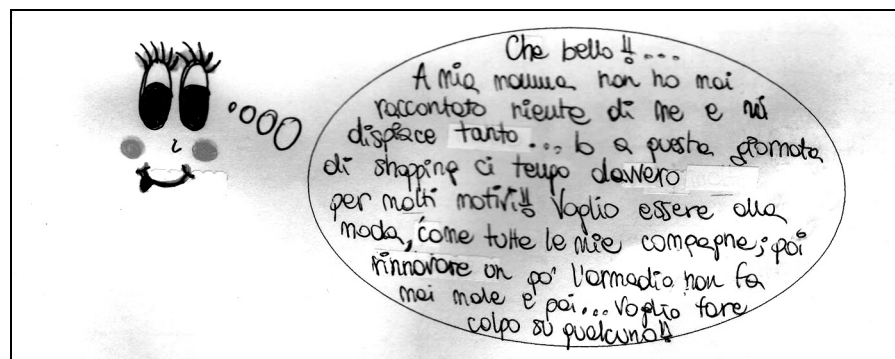 Che bello!!...
A mia mamma non ho mai
raccontato niente di me e mi
dispiace tanto... Io a questa giornata
di shopping ci tengo davvero
per molti motivi!! Voglio essere alla
moda, come tutte le mie compagne; poi
rinnovare un po' l'armadio non fa
mai male e poi... Voglio fare
colpo su qualcuno!!